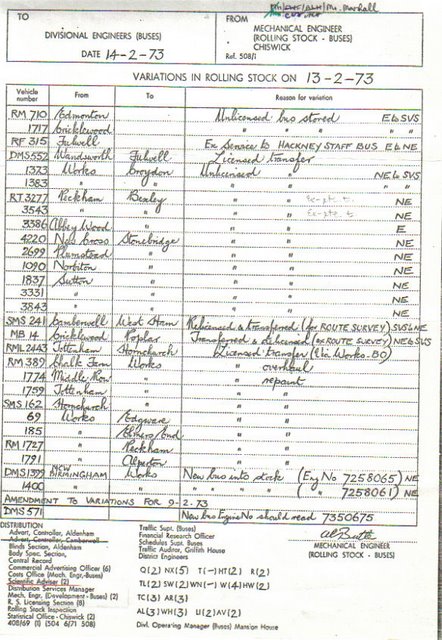 TO
DIVISIONAL ENGINEERS (BUSES)
DATE 14-2-73
FROM
MECHANICAL ENGINEER
(ROLLING STOCK - BUSES)
CHISWICK
Ref. 508/1
VARIATIONS IN ROLLING STOCK ON 13-2-73
Vehicle number From To Reason for variation
RM 710 Edmonton Unlicensed bus stored E & SVS
1717 Cricklewood " " " " "
RF 315 Fulwell Ex Service to HACKNEY STAFF BUS E & NE
DMS552 Wandsworth Fulwell Licensed transfer
1373 Works Croydon Unlicensed " NE & SVS
1383 " " " " "
RT 3277 Peckham Bexley " " NE
3543 " " " " NE
3386 Abbey Wood " " " E
4220 New Cross Stonebridge " " NE
2699 Plumstead " " " NE
1090 Norbiton " " " NE
1837 Sutton " " " NE
3331 " " " " NE
3843 " " " " NE
SMS 241 Camberwell West Ham Relicensed & transferred (for ROUTE SURVEY) SVS & NE
MB 14 Cricklewood Poplar Transferred & delicensed (ex ROUTE SURVEY) NE & SVS
RML 2443 Tottenham Hornchurch Licensed transfer (Via Works. BO)
RM 389 Chalk Farm Works " overhaul
1774 Middle Row " " repaint
1759 Tottenham " " "
SMS 162 Hornchurch " " "
69 Works Edgware " "
185 " Elmers End " "
RM 1727 " Peckham " "
1791 " Alperton " "
DMS 1399 NEW BIRMINGHAM Works New bus into stock (Eng No 7258065) NE
1400 " " " " " ( " " 7258061) NE
AMENDMENT TO VARIATIONS FOR 9-2-73
DMS 571 New bus Engine No should read 7350675
DISTRIBUTION
Advert. Controller, Aldenham
Advert. Controller Camberwell
Blinds Section, Aldenham
Body Spec. Section,
Central Record
Commercial Advertising Officer (6)
Costs Office (Mech. Engr.-Buses)
Scientific Adviser (2)
Distribution Services Manager
Mech. Engr. (Development - Buses) (2)
R. S. Licensing Section (8)
Rolling Stock Inspection
Statistical Office - Chiswick (2)
408/69 (1) (504 6/71 508)
Traffic Supt. (Buses)
Financial Research Officer
Schedules Supt. Buses
Traffic Auditor, Griffith House
District Engineers
Q(2) NX(5) T(-) HT(2) R(2)
TL(2) SW(2) WN(-) W(4) HW(2)
TC(3) AR(3)
AL(3) WH(3) U(2) AV(2)
Divl. Operating Manager (Buses) Mansion House
MECHANICAL ENGINEER
(ROLLING STOCK - BUSES)